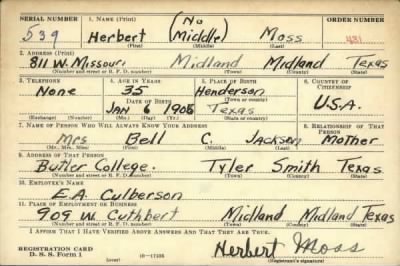 SERIAL NUMBER 1. NAME (Print) ORDER NUMBER
539 Herbert (No Middle) Moss 431
(First) (Middle) (Last)
2. ADDRESS (Print)
811 W. Missouri Midland Midland Texas
(Number and street or R. F. D. number) (Town) (County) (State)
3. TELEPHONE 4. AGE IN YEARS 5. PLACE OF BIRTH 6. COUNTRY OF CITIZENSHIP
None 35 Henderson
(Town or county)
DATE OF BIRTH
Jan 6 1905 Texas U.S.A.
(Exchange) (Number) (Mo.) (Day) (Yr.) (State or country)
7. NAME OF PERSON WHO WILL ALWAYS KNOW YOUR ADDRESS 8. RELATIONSHIP OF THAT PERSON
Mrs Bell C. Jackson Mother
(Mr., Mrs., Miss) (First) (Middle) (Last)
9. ADDRESS OF THAT PERSON
Butler College. Tyler Smith Texas
(Number and street or R. F. D. number) (Town) (County) (State)
10. EMPLOYER'S NAME
E.A. Culberson
11. PLACE OF EMPLOYMENT OR BUSINESS
909 W. Cuthbert Midland Midland Texas
(Number and street or R. F. D. number) (Town) (County) (State)
I AFFIRM THAT I HAVE VERIFIED ABOVE ANSWERS AND THAT THEY ARE TRUE.
REGISTRATION CARD
D. S. S. Form 1 (over) Herbert Moss
(Registrant's signature)